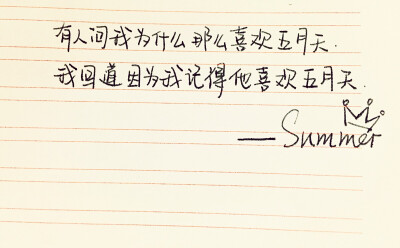 有人问我为什么那么喜欢五月天.
我回道因为我记得他喜欢五月天.
—Summer